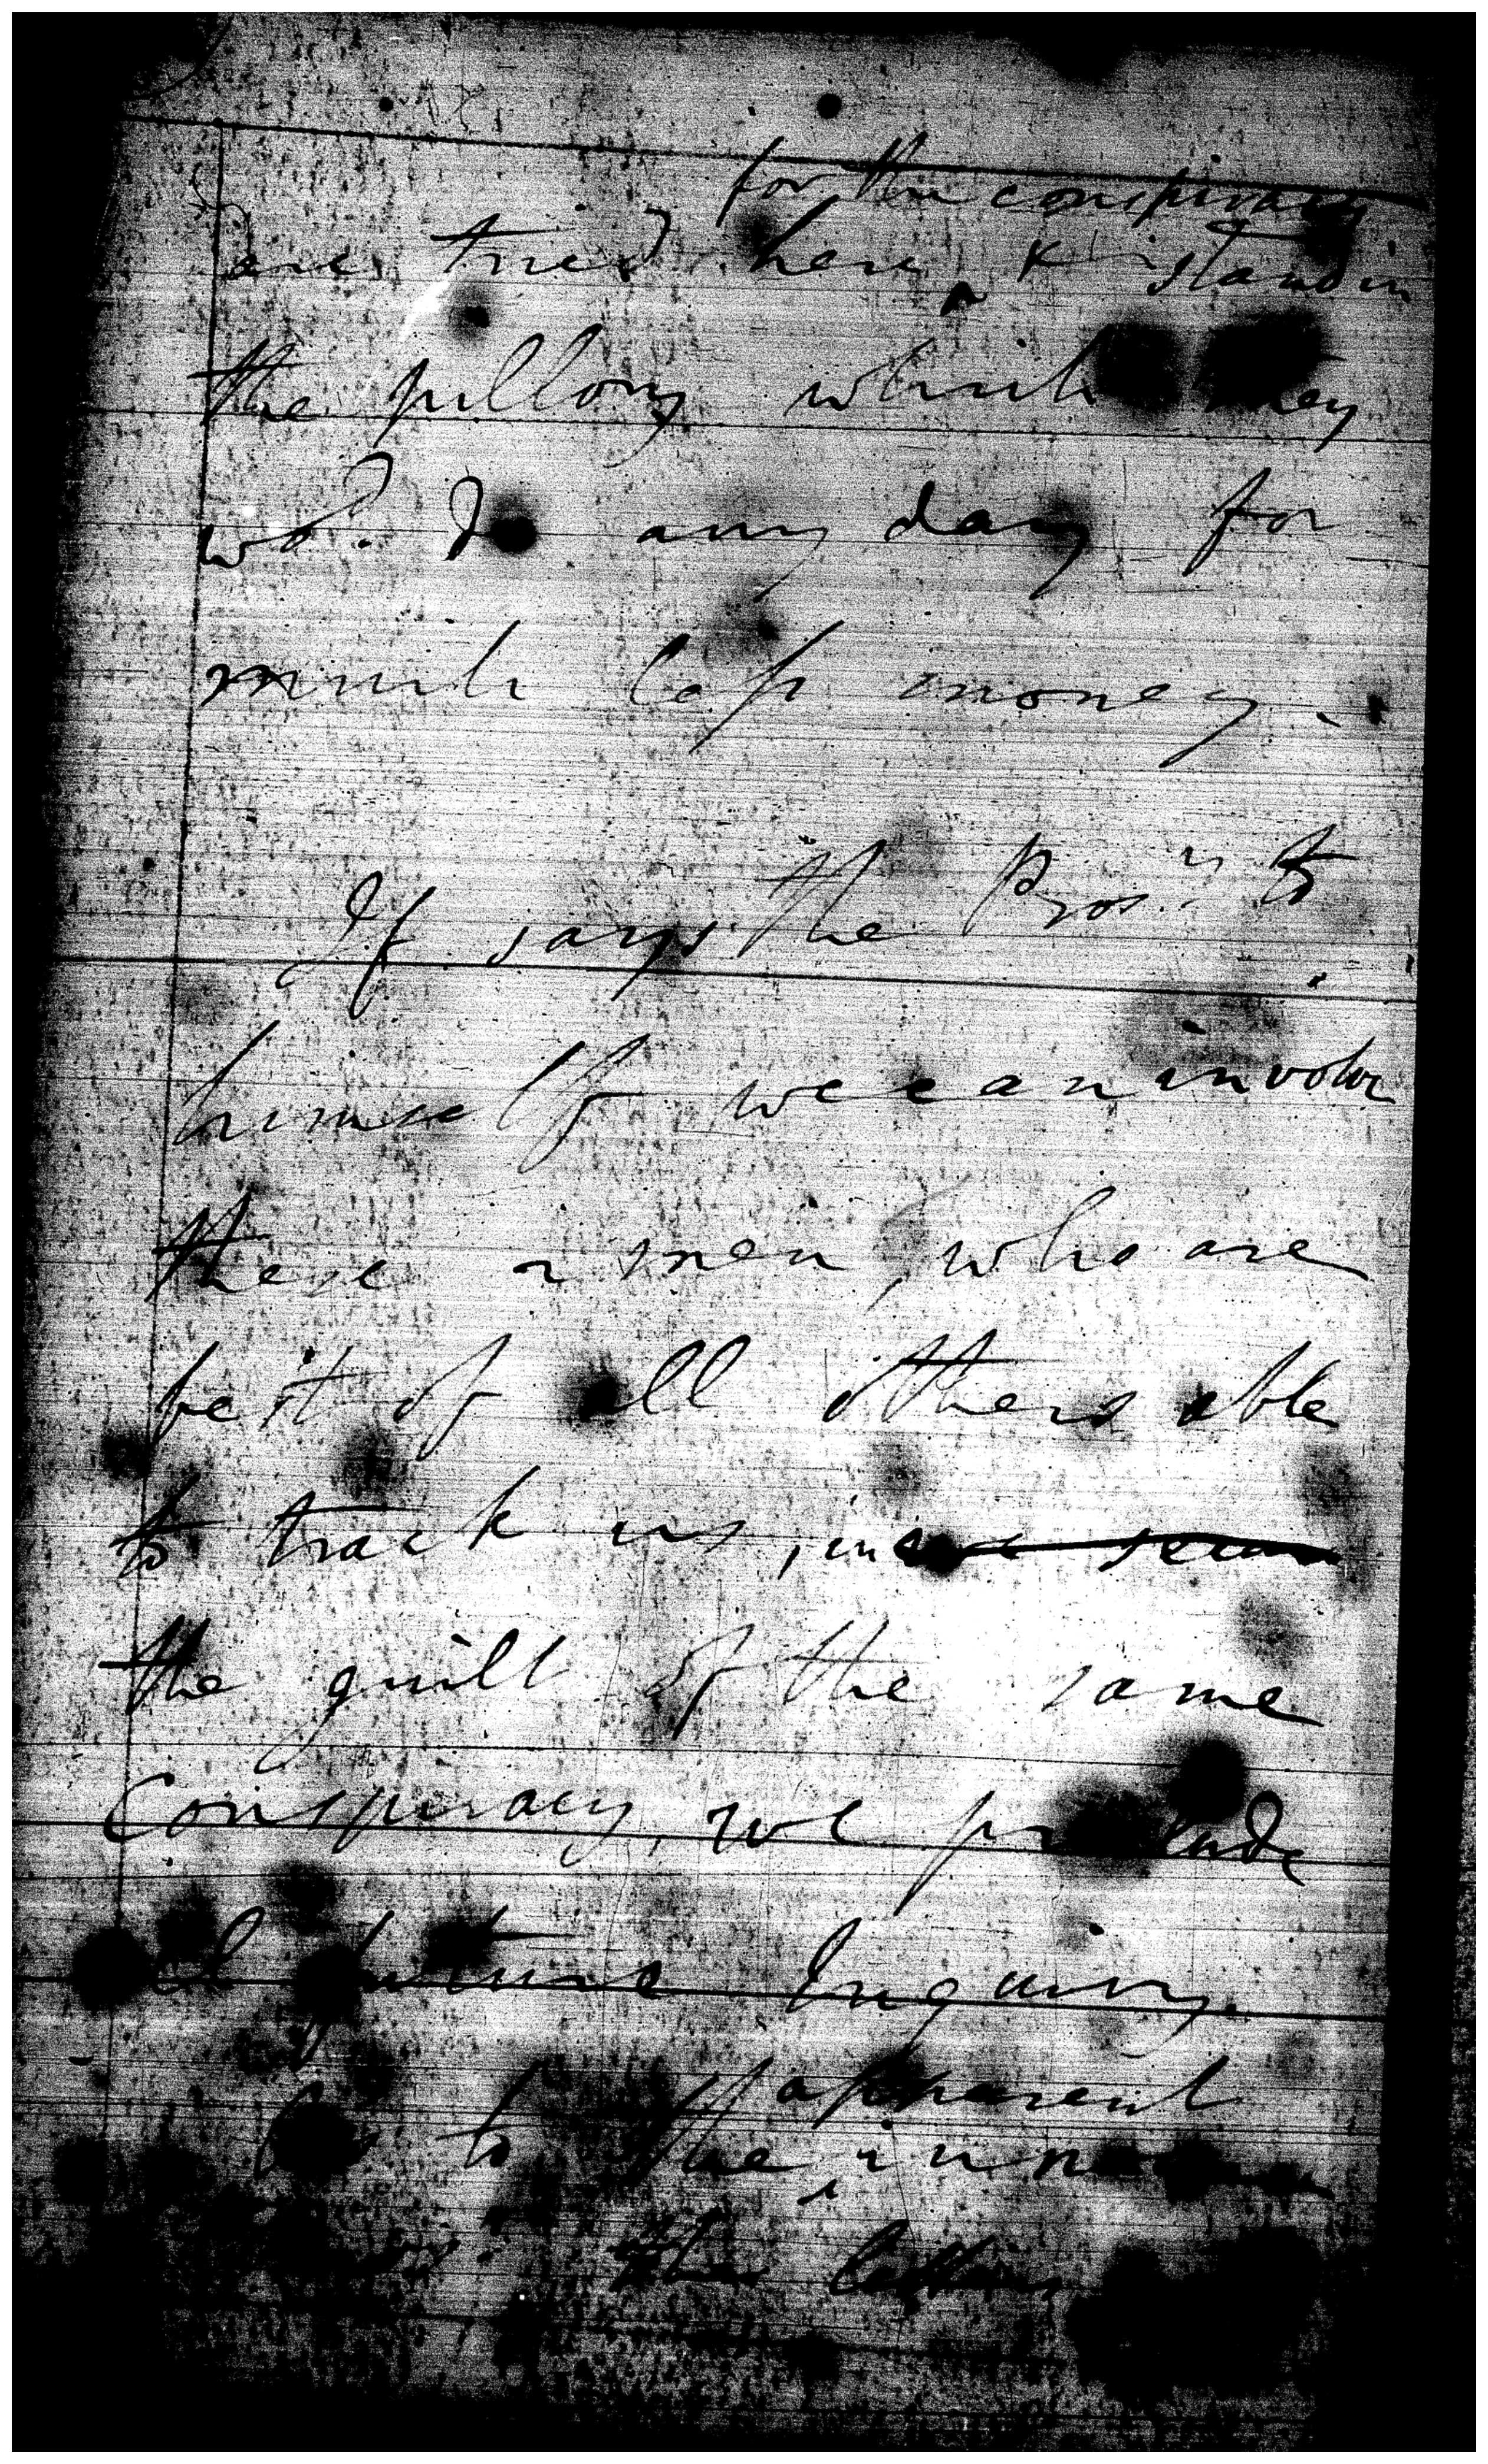 for the conspiracy
are tried here & stand in
the pillory which they
wod. do any day for
much less money.
If says the Prosr. to
himself we can involve
these 2 men, who are
best of all others able
to track us, in
the guilt of the same
Conspiracy, we preclude
all future Inquiry.
apparent
to the
the letters